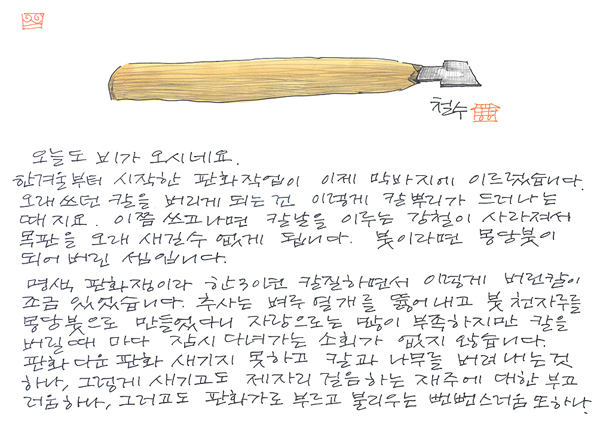 철수
오늘도 비가 오시네요.
한겨울부터 시작한 판화작업이 이제 막바지에 이르렀습니다.
오래쓰던 칼을 버리게 되는건 이렇게 칼뿌리가 드러나는
때지요. 이쯤 쓰고나면 칼날을 이루는 강철이 사라져서
목판을 오래 새길수 없게 됩니다. 붓이라면 몽당붓이
되어 버린 셈입니다.
명색 판화쟁이라 한30이년 칼질하면서 이렇게 버린칼이
조금 있었습니다. 추사는 벼루 열개를 뚫어내고 붓 천자루를
몽당붓으로 만들었다니 자랑으로는 많이 부족하지만 칼을
버릴때 마다 잠시 다녀가는 소회가 없지 않습니다.
판화다운 판화 새기지 못하고 칼과 나무를 버려내는것
하나, 그렇게 새기고도 제자리 걸음하는 재주에 대한 부끄
러움하나, 그러고도 판화가로 부르고 불리우는 뻔뻔스러움 또하나!